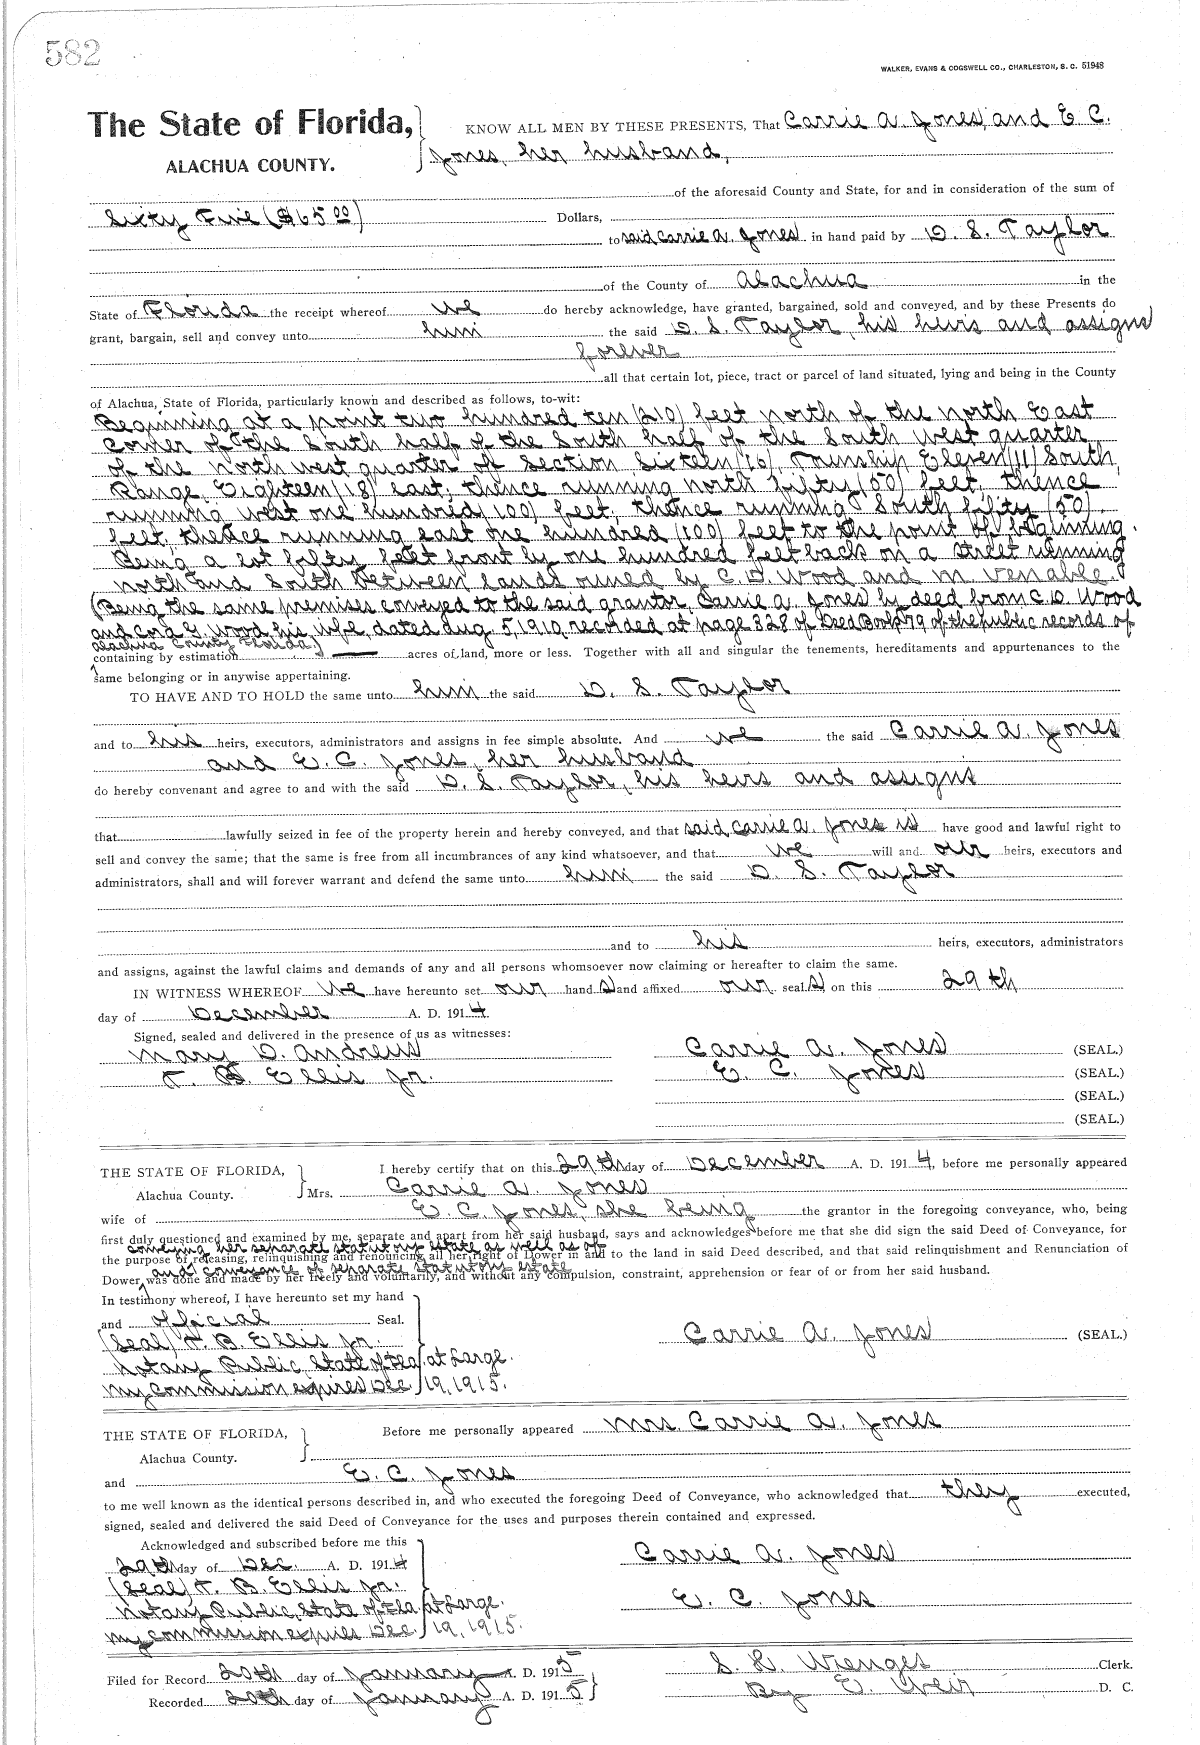 582
WALKER, EVANS & COGSWELL CO., CHARLESTON, S. C. 51948
The State of Florida, KNOW ALL MEN BY THESE PRESENTS, That Carrie A. Jones, and E. C.
ALACHUA COUNTY. Jones, her husband,
of the aforesaid County and State, for and in consideration of the sum of
Sixty Five ($65.00) Dollars,
to said Carrie A. Jones in hand paid by D. S. Taylor
of the County of Alachua in the
State of Florida the receipt whereof we do hereby acknowledge, have granted, bargained, sold and conveyed, and by these Presents do
grant, bargain, sell and convey unto him the said D. S. Taylor, his heirs and assigns
forever
all that certain lot, piece, tract or parcel of land situated, lying and being in the County
of Alachua, State of Florida, particularly known and described as follows, to-wit:
Beginning at a point two hundred ten (210) feet north of the north East
corner of the South half of the South half of the South west quarter
of the North west quarter of Section Sixteen (16), Township Eleven (11) South,
Range, Eighteen (18) east, thence running north fifty (50) feet, thence
running west one hundred (100) feet, thence running South fifty (50)
feet, thence running east one hundred (100) feet to the point of beginning.
Being a lot fifty feet front by one hundred feet back on a street running
north and South between lands owned by C. D. Wood and M. Venable.
(Being the same premises conveyed to the said grantor, Carrie A. Jones by deed from C. D. Wood
and Cora G. Wood his wife, dated Aug. 5, 1910, recorded at page 328 of Deed Book 79 of the public records of
Alachua County Florida.)
containing by estimation acres of land, more or less. Together with all and singular the tenements, hereditaments and appurtenances to the
same belonging or in anywise appertaining.
TO HAVE AND TO HOLD the same unto him the said D. S. Taylor
and to his heirs, executors, administrators and assigns in fee simple absolute. And we the said Carrie A. Jones
and E. C. Jones, her husband
do hereby convenant and agree to and with the said D. S. Taylor, his heirs and assigns
that lawfully seized in fee of the property herein and hereby conveyed, and that said Carrie A. Jones is have good and lawful right to
sell and convey the same; that the same is free from all incumbrances of any kind whatsoever, and that we will and our heirs, executors and
administrators, shall and will forever warrant and defend the same unto him the said D. S. Taylor
and to his heirs, executors, administrators
and assigns, against the lawful claims and demands of any and all persons whomsoever now claiming or hereafter to claim the same.
IN WITNESS WHEREOF we have hereunto set our hand s and affixed our seal s on this 29th
day of December A. D. 1914.
Signed, sealed and delivered in the presence of us as witnesses:
Mary D. Andrews Carrie A. Jones (SEAL.)
T. B. Ellis Jr. E. C. Jones (SEAL.)
(SEAL.)
(SEAL.)
THE STATE OF FLORIDA, I hereby certify that on this 29th day of December A. D. 1914, before me personally appeared
Alachua County. Mrs. Carrie A. Jones
wife of E. C. Jones, she being the grantor in the foregoing conveyance, who, being
first duly questioned and examined by me, separate and apart from her said husband, says and acknowledges before me that she did sign the said Deed of Conveyance, for
conveying her separate statutory estate as well as of
the purpose of releasing, relinquishing and renouncing all her right of Dower in and to the land in said Deed described, and that said relinquishment and Renunciation of
and conveyance of separate statutory estate
Dower was done and made by her freely and voluntarily, and without any compulsion, constraint, apprehension or fear of or from her said husband.
In testimony whereof, I have hereunto set my hand
and official Seal.
(Seal) T. B. Ellis Jr. Carrie A. Jones (SEAL.)
Notary Public, State of Fla. at Large.
My commission expires Dec. 19, 1915.
THE STATE OF FLORIDA, Before me personally appeared Mrs. Carrie A. Jones
Alachua County.
and E. C. Jones
to me well known as the identical persons described in, and who executed the foregoing Deed of Conveyance, who acknowledged that they executed,
signed, sealed and delivered the said Deed of Conveyance for the uses and purposes therein contained and expressed.
Acknowledged and subscribed before me this
29th day of Dec. A. D. 1914 Carrie A. Jones
(Seal) T. B. Ellis Jr.
Notary Public, State of Fla. at Large. E. C. Jones
My commission expires Dec. 19, 1915.
Filed for Record 20th day of January A. D. 1915 S. H. Wienges Clerk.
Recorded 20th day of January A. D. 1915 By E. Weir D. C.